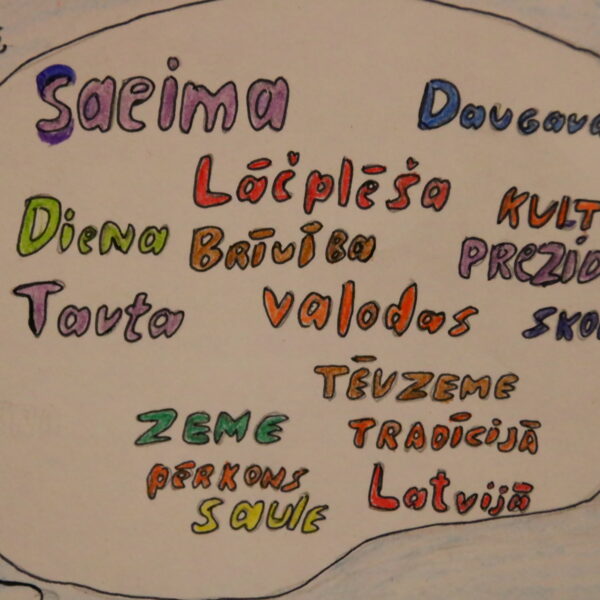 Saeima
Daugava
Lāčplēša
KULT
Diena
Brīvība
PREZID
Tauta
valodas
SKOL
TĒVZEME
ZEME
TRADĪCIJĀ
PĒRKONS
Latvijā
SAULE